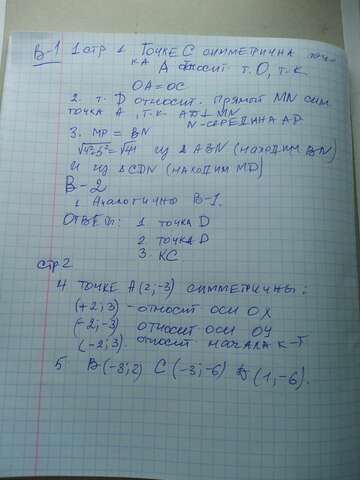 В-1 1 стр 1 Точке С симметрична точ-
ка А относит т. О, т.к.
ОА=ОС
2. т. D относит. прямой MN сим.
точка А, т.к. AD⊥MN
N-середина AD
3. MD = BN
из △ABN (находим BN)
и из △CDN (находим MD)
В-2
1 Аналогично В-1.
Ответы: 1 точка D
2 точка D
3 KC
стр 2
4 точке А(2;-3) симметричны:
(+2;3) - относит оси ОХ
(-2;-3) относит оси ОУ
(-2;3) относит начала к-т
5 B(-3;2) C(-3;-6) D(1,-6).